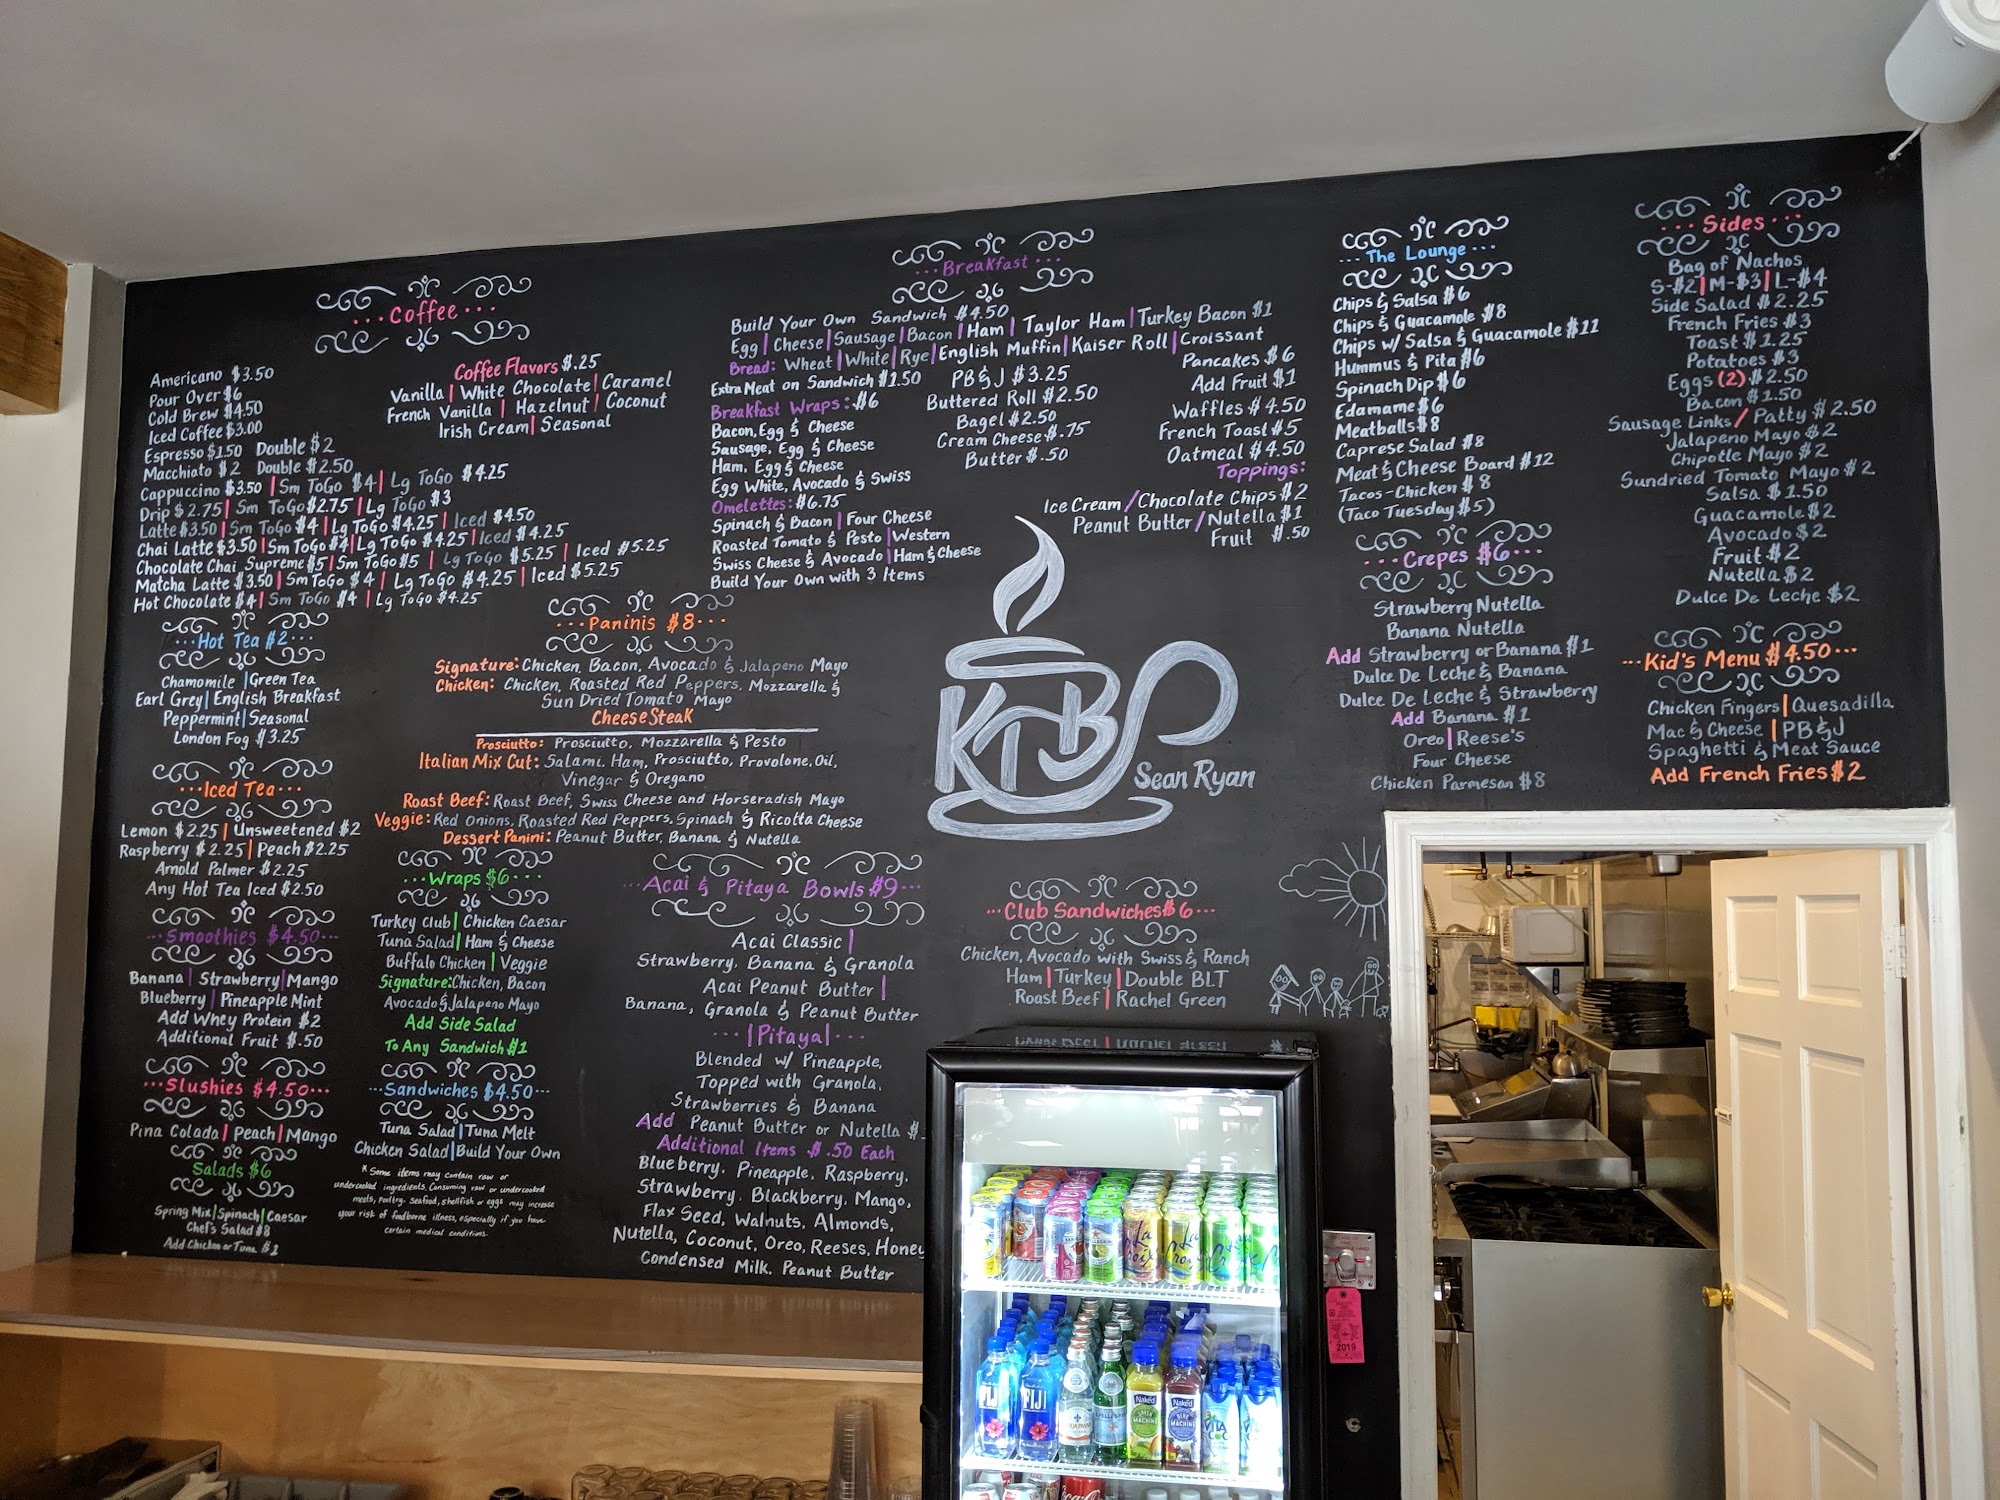 Coffee
Americano $3.50
Pour Over $6
Cold Brew $4.50
Iced Coffee $3.00
Espresso $1.50 Double $2
Macchiato $2 Double $2.50
Cappuccino $3.50 | Sm ToGo $4 | Lg ToGo $4.25
Drip $2.75 | Sm ToGo $2.75 | Lg ToGo $3
Latte $3.50 | Sm ToGo $4 | Lg ToGo $4.25 | Iced $4.50
Chai Latte $3.50 | Sm ToGo $4 | Lg ToGo $4.25 | Iced $4.25
Chocolate Chai Supreme $5 | Sm ToGo $5 | Lg ToGo $5.25 | Iced $5.25
Matcha Latte $3.50 | Sm ToGo $4 | Lg ToGo $4.25 | Iced $5.25
Hot Chocolate $4 | Sm ToGo $4 | Lg ToGo $4.25
Coffee Flavors $.25
Vanilla | White Chocolate | Caramel
French Vanilla | Hazelnut | Coconut
Irish Cream | Seasonal
Hot Tea $2
Chamomile | Green Tea
Earl Grey | English Breakfast
Peppermint | Seasonal
London Fog $3.25
Iced Tea
Lemon $2.25 | Unsweetened $2
Raspberry $2.25 | Peach $2.25
Arnold Palmer $2.25
Any Hot Tea Iced $2.50
Smoothies $4.50
Banana | Strawberry | Mango
Blueberry | Pineapple Mint
Add Whey Protein $2
Additional Fruit $.50
Slushies $4.50
Pina Colada | Peach | Mango
Salads $6
Spring Mix | Spinach | Caesar
Chef's Salad $8
Add Chicken or Tuna $2
Paninis $8
Signature: Chicken, Bacon, Avocado & Jalapeno Mayo
Chicken: Chicken, Roasted Red Peppers, Mozzarella &
Sun Dried Tomato Mayo
CheeseSteak
Prosciutto: Prosciutto, Mozzarella & Pesto
Italian Mix Cut: Salami, Ham, Prosciutto, Provolone, Oil,
Vinegar & Oregano
Roast Beef: Roast Beef, Swiss Cheese and Horseradish Mayo
Veggie: Red Onions, Roasted Red Peppers, Spinach & Ricotta Cheese
Dessert Panini: Peanut Butter, Banana & Nutella
Wraps $6
Turkey Club | Chicken Caesar
Tuna Salad | Ham & Cheese
Buffalo Chicken | Veggie
Signature: Chicken, Bacon
Avocado & Jalapeno Mayo
Add Side Salad
To Any Sandwich $1
Sandwiches $4.50
Tuna Salad | Tuna Melt
Chicken Salad | Build Your Own
* Some items may contain raw or
undercooked ingredients. Consuming raw or undercooked
meats, poultry, seafood, shellfish or eggs may increase
your risk of foodborne illness, especially if you have
certain medical conditions.
Breakfast
Build Your Own Sandwich $4.50
Egg | Cheese | Sausage | Bacon | Ham | Taylor Ham | Turkey Bacon $1
Bread: Wheat | White | Rye | English Muffin | Kaiser Roll | Croissant
Extra Meat on Sandwich $1.50
Breakfast Wraps: $6
Bacon, Egg & Cheese
Sausage, Egg & Cheese
Ham, Egg & Cheese
Egg White, Avocado & Swiss
Omelettes: $6.75
Spinach & Bacon | Four Cheese
Roasted Tomato & Pesto | Western
Swiss Cheese & Avocado | Ham & Cheese
Build Your Own with 3 Items
PB&J $3.25
Buttered Roll $2.50
Bagel $2.50
Cream Cheese $.75
Butter $.50
Pancakes $6
Add Fruit $1
Waffles $4.50
French Toast $5
Oatmeal $4.50
Toppings:
Ice Cream / Chocolate Chips $2
Peanut Butter / Nutella $1
Fruit $.50
KTB
Sean Ryan
Acai & Pitaya Bowls $9
Acai Classic |
Strawberry, Banana & Granola
Acai Peanut Butter |
Banana, Granola & Peanut Butter
| Pitaya |
Blended w/ Pineapple,
Topped with Granola,
Strawberries & Banana
Add Peanut Butter or Nutella $
Additional Items $.50 Each
Blueberry, Pineapple, Raspberry,
Strawberry, Blackberry, Mango,
Flax Seed, Walnuts, Almonds,
Nutella, Coconut, Oreo, Reeses, Honey
Condensed Milk, Peanut Butter
Club Sandwiches $6
Chicken, Avocado with Swiss & Ranch
Ham | Turkey | Double BLT
Roast Beef | Rachel Green
The Lounge
Chips & Salsa $6
Chips & Guacamole $8
Chips w/ Salsa & Guacamole $11
Hummus & Pita $6
Spinach Dip $6
Edamame $6
Meatballs $8
Caprese Salad $8
Meat & Cheese Board $12
Tacos-Chicken $8
(Taco Tuesday $5)
Crepes $6
Strawberry Nutella
Banana Nutella
Add Strawberry or Banana $1
Dulce De Leche & Banana
Dulce De Leche & Strawberry
Add Banana $1
Oreo | Reese's
Four Cheese
Chicken Parmesan $8
Sides
Bag of Nachos
S-$2 | M-$3 | L-$4
Side Salad $2.25
French Fries $3
Toast $1.25
Potatoes $3
Eggs (2) $2.50
Bacon $1.50
Sausage Links / Patty $2.50
Jalapeno Mayo $2
Chipotle Mayo $2
Sundried Tomato Mayo $2
Salsa $1.50
Guacamole $2
Avocado $2
Fruit $2
Nutella $2
Dulce De Leche $2
Kid's Menu $4.50
Chicken Fingers | Quesadilla
Mac & Cheese | PB&J
Spaghetti & Meat Sauce
Add French Fries $2
La Croix
FIJI
FIJI
Naked
GREEN MACHINE
Naked
BLUE MACHINE
VITA COCO
Coca-Cola
2019